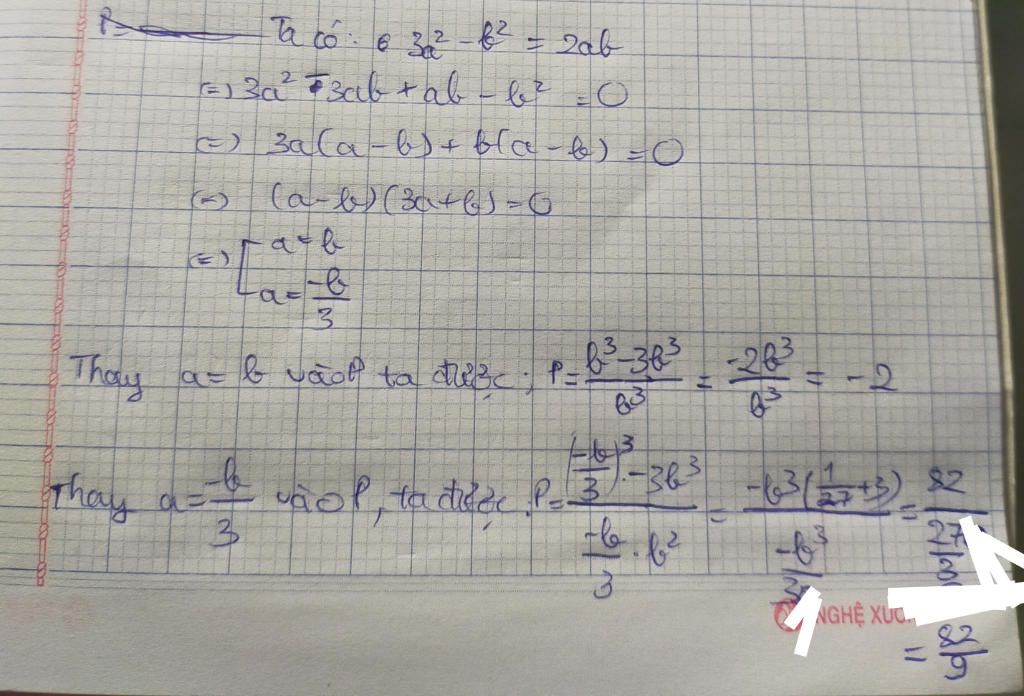 P=
Ta có: 3a² - b² = 2ab
(=) 3a² - 3ab + ab - b² = 0
(=) 3a(a-b) + b(a-b) = 0
(=) (a-b)(3a+b) = 0
(=) [ a = b
a = -b/3
Thay a = b vào P ta được: P = (b³ - 3b³)/b³ = -2b³/b³ = -2
Thay a = -b/3 vào P, ta được: P = ((-b/3)³ - 3b³)/(-b/3 · b²) = -b³(1/27 + 3)/(-b³/3) = 82/27/3
NGHỆ
= 82/9